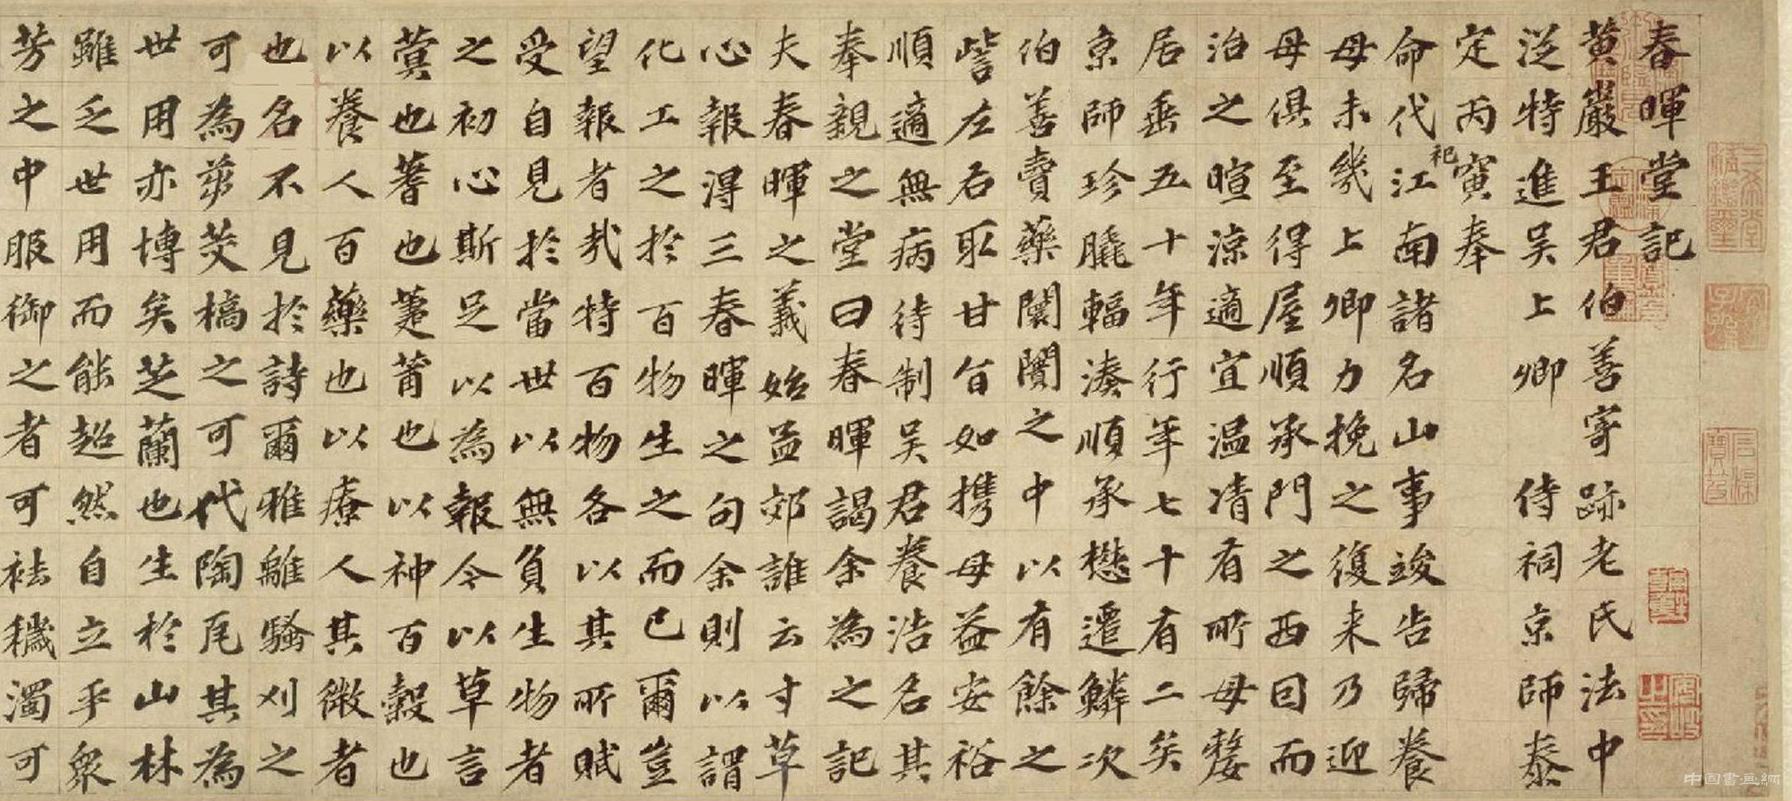 春暉堂記
黄嚴王君伯善寄跡老氏法中
泛特進吴上卿侍祠京師泰
定丙寅奉
祀
命代江南諸名山事竣告歸養
母未幾上卿力挽之復来乃迎
母俱至得屋順承門之西曰而
治之暄涼適宜温凊有所母嫠
居垂五十年行年七十有二矣
京師珍臃輻湊順承懋遷鱗次
伯善賣藥闤闠之中以有餘之
訾左右取甘旨如携母益安裕
順適無病待制吴君養浩名其
奉親之堂曰春暉謁余為之記
夫春暉之義始益郊誰云寸草
心報淂三春暉之句余則以謂
化工之於百物生之而已爾豈
望報者㢤特百物各以其所賦
受自見於當世以無負生物者
之初心斯足以為報令以草言
蓂也蓍也萐莆也以神百穀也
以養人百藥也以療人其微者
也名不見於詩爾雅離騷刈之
可為薪茭槁之可代陶瓦其為
世用亦博矣芝蘭也生於山林
雖乏世用而能超然自立乎衆
芳之中服御之者可祛穢濁可
中国書画網